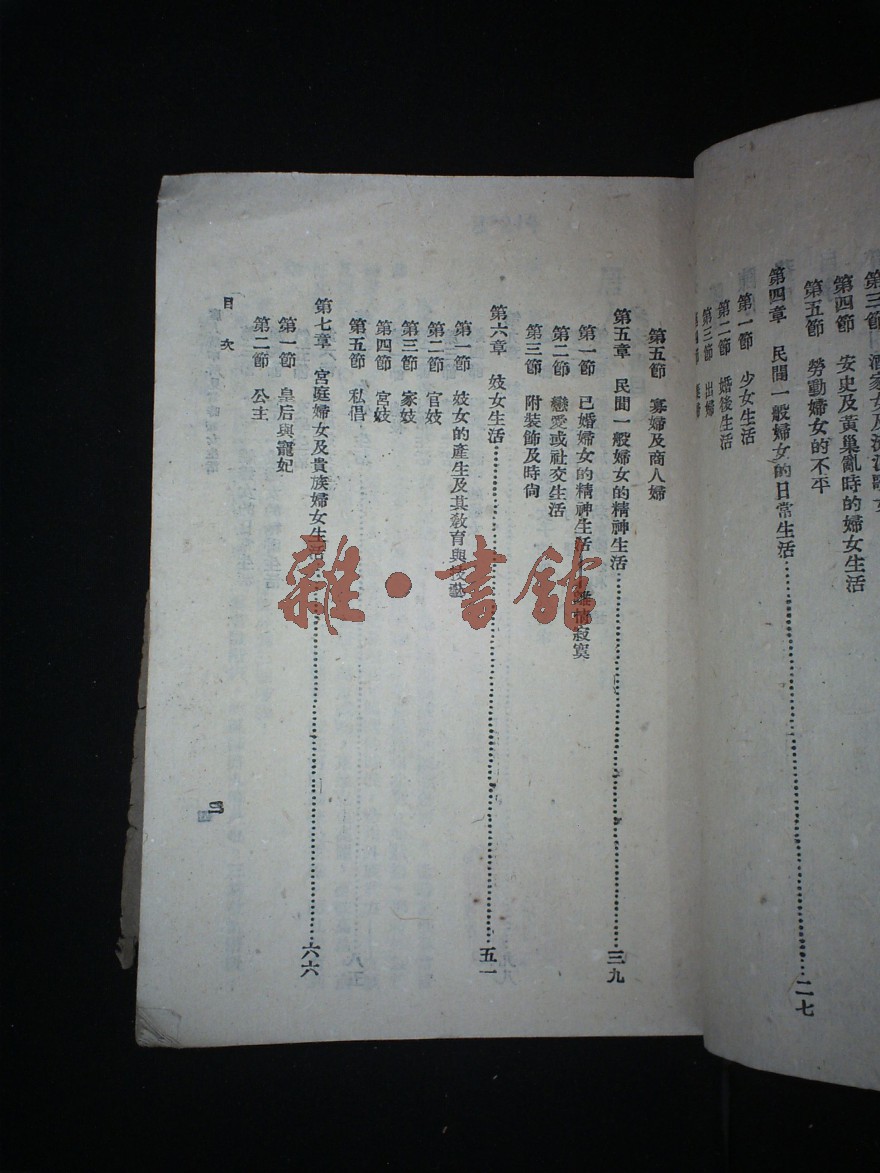 第四節　安史及黃巢亂時的婦女生活
第五節　勞動婦女的不平
第四章　民間一般婦女的日常生活……二七
第一節　少女生活
第二節　婚後生活
第三節　出婦
第五節　寡婦及商人婦
第五章　民間一般婦女的精神生活……三九
第一節　已婚婦女的精神生活 離情寂寞
第二節　戀愛或社交生活
第三節　附裝飾及時尙
第六章　妓女生活……五一
第一節　妓女的產生及其教育與技藝
第二節　官妓
第三節　家妓
第四節　宮妓
第五節　私倡
第七章　宮庭婦女及貴族婦女生活……六六
第一節　皇后與寵妃
第二節　公主
目次
雜·書館